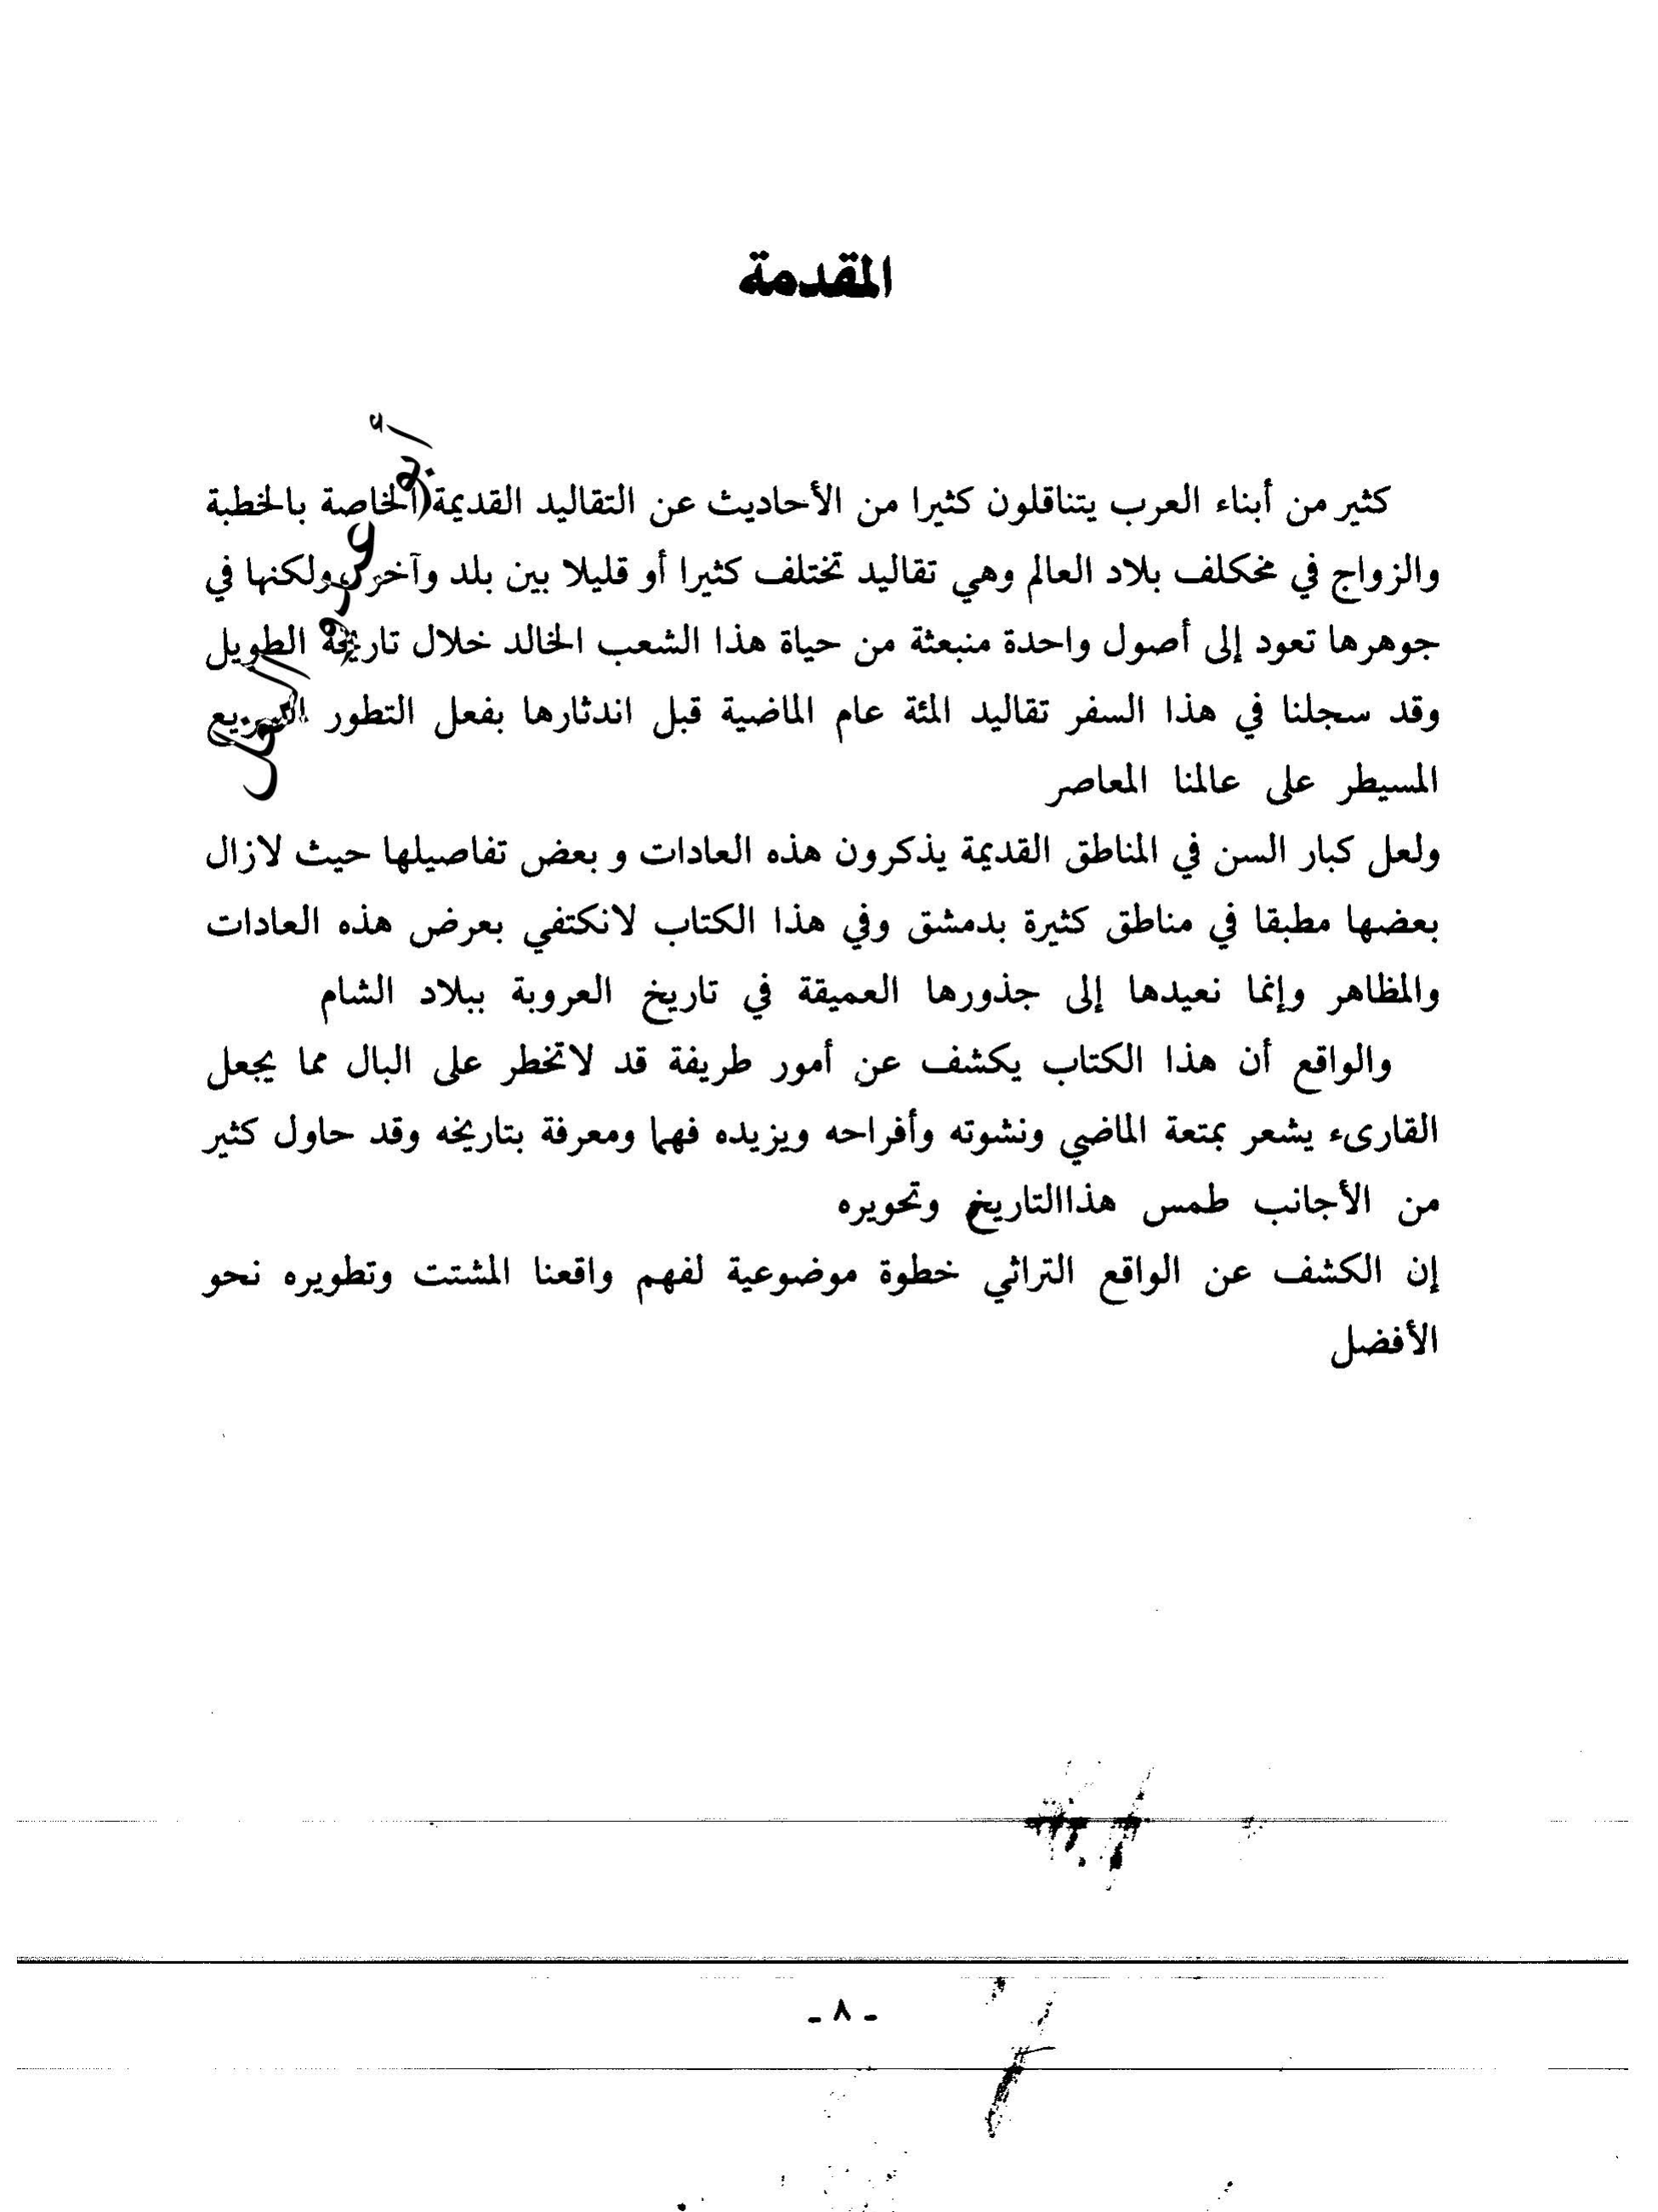 المقدمة
كثير من أبناء العرب يتناقلون كثيرا من الأحاديث عن التقاليد القديمة الخاصة بالخطبة
والزواج في مخكلف بلاد العالم وهي تقاليد تختلف كثيرا أو قليلا بين بلد وآخر ولكنها في
جوهرها تعود إلى أصول واحدة منبعثة من حياة هذا الشعب الخالد خلال تاريخة الطويل
وقد سجلنا في هذا السفر تقاليد المئة عام الماضية قبل اندثارها بفعل التطور السريع
المسيطر على عالمنا المعاصر
ولعل كبار السن في المناطق القديمة يذكرون هذه العادات و بعض تفاصيلها حيث لازال
بعضها مطبقا في مناطق كثيرة بدمشق وفي هذا الكتاب لانكتفي بعرض هذه العادات
والمظاهر وإنما نعيدها إلى جذورها العميقة في تاريخ العروبة ببلاد الشام
والواقع أن هذا الكتاب يكشف عن أمور طريفة قد لاتخطر على البال مما يجعل
القارىء يشعر بمتعة الماضي ونشوته وأفراحه ويزيده فهما ومعرفة بتاريخه وقد حاول كثير
من الأجانب طمس هذاالتاريخ وتحويره
إن الكشف عن الواقع التراثي خطوة موضوعية لفهم واقعنا المشتت وتطويره نحو
الأفضل
- ٨ -